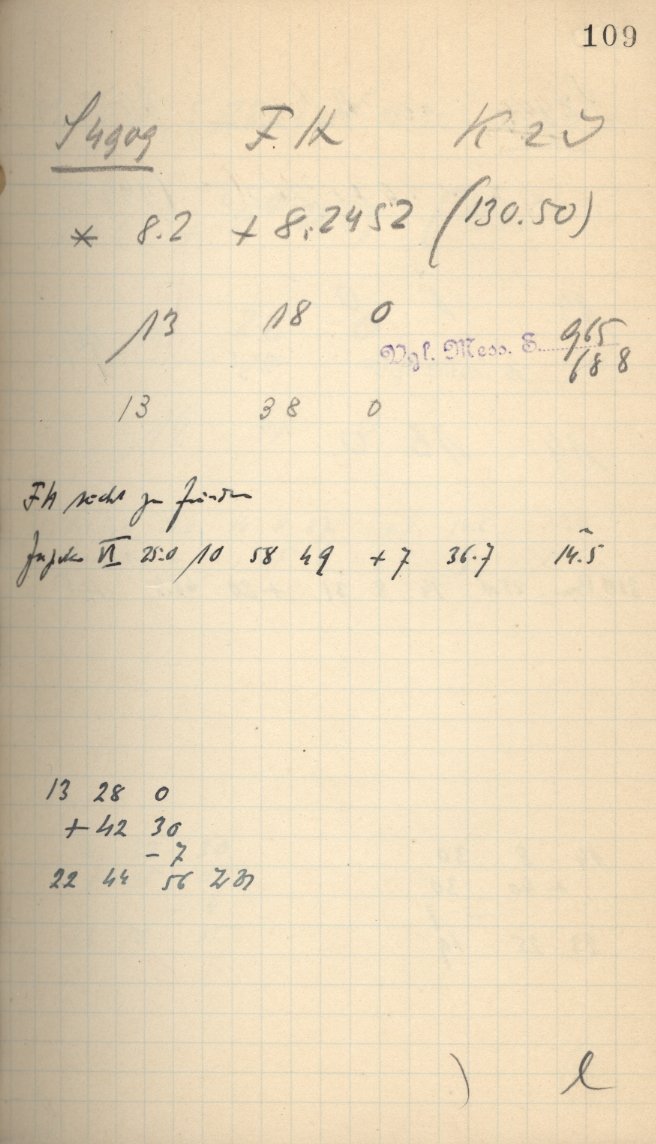 109
S4909 FK K 2
* 8.2 + 8.2452 (130.50)
13 18 0
Vgl. Mess. S. 965
688
13 38 0
FK nicht zu finden
VI 25.0 10 58 49 + 7 36.7 14.5
13 28 0
+ 42 30
- 7
22 44 56